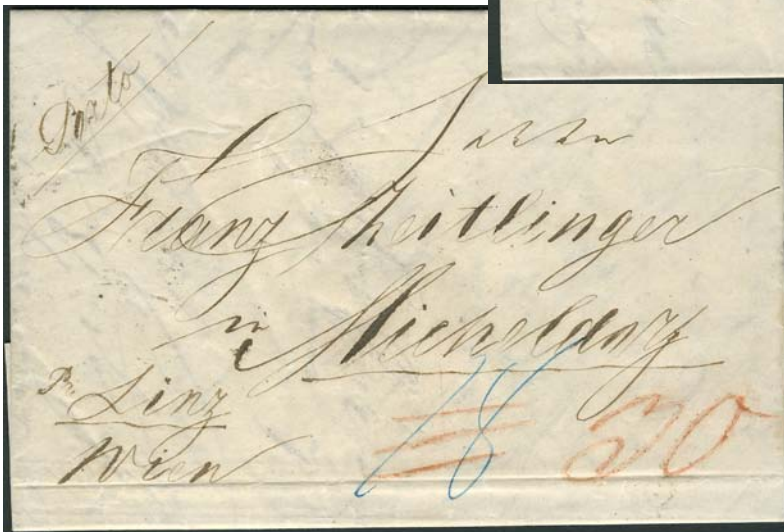 Porto
Herrn
Franz Zeitlinger
in Micheldorf
Pr. Linz
Wien
18 20